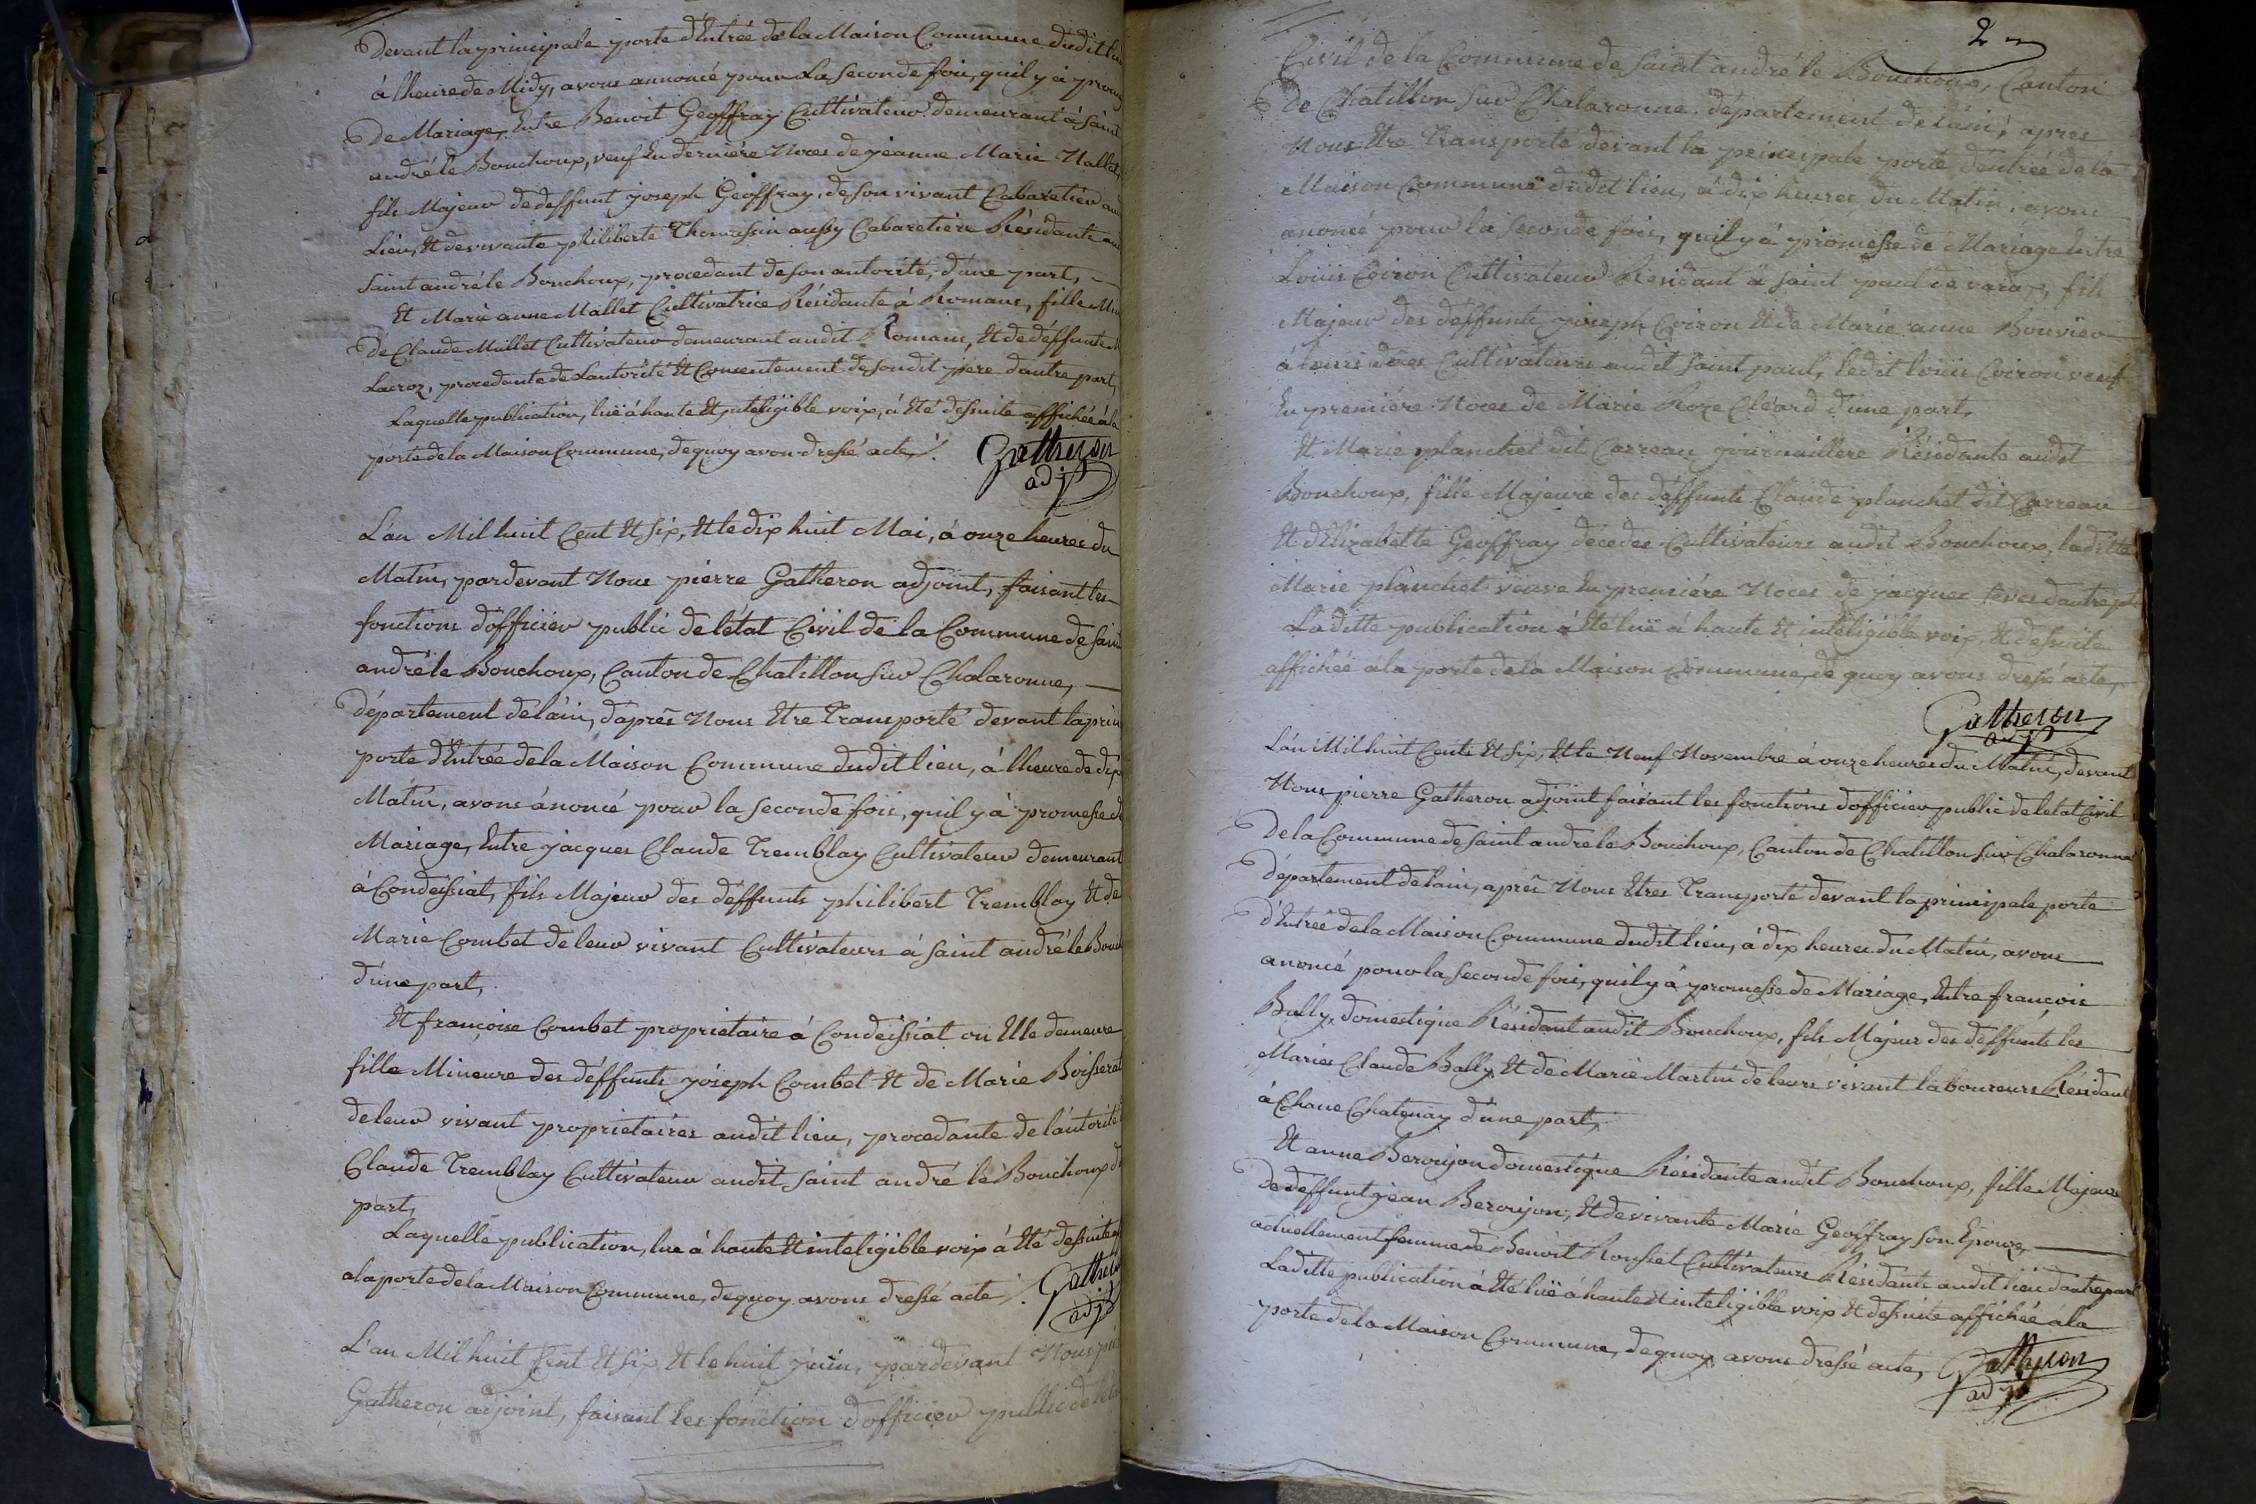 Devant la principale porte d'Entrée de la Maison Commune dudit lieu
à lheure de Midy, avons annoncé pour La Seconde fois, quil y à prom
De Mariage, Entre Benoit Geoffray Cultivateur demeurant à Saint
andré le Bouchoux, veuf En derniére Noces de jeanne Marie Nallet,
fils Majeur de deffunt joseph Geoffray, de son vivant Cabaretier au
Lieu, Et de vivante philiberte Thomassin aussy Cabaretiere Résidante au
Saint andré le Bouchoux, procedant de son autorité, d'une part,
Et Marie anne Mallet Cultivatrice Résidante à Romans, fille Min
De Claude Mallet Cultivateur demeurant audit Romans, Et de déffunte
Lacroz, procedante de Lautorité Et Consentement de Sondit pere dautre part,
Laquelle publication, luë à haute Et inteligible voix, à Eté desuite affichée à la
porte de la Maison Commune, de quoy avon dressé acte,
Gatheron
adjt
L'an Mil huit Cent Et Six, Et le dix huit Mai, à onze heures du
Matin, pardevant Nous pierre Gatheron adjoint, faisant les
fonctions dofficier public de létat Civil de la Commune de Saint
andré le Bouchoux, Canton de Chatillon Sur Chalaronne,
département de lain, daprês Nous Etre Transporté devant la prin
porte d'Entrée de la Maison Commune dudit lieu, à lheure de dix
Matin, avons ánoncé pour la Seconde fois, quil y à promesse de
Mariage, Entre jacques Claude Tremblay Cultivateur demeurant
à Condeissiat, fils Majeur des déffunts philibert Tremblay Et de
Marie Combet de leur vivant Cultivateurs à Saint andré le Bouch
d'une part,
Et françoise Combet proprietaire à Condeissiat ou Elle demeure
fille Mineure des déffunts joseph Combet Et de Marie Boisserat
de leur vivant proprietaires audit lieu, procedante de láutorité
Claude Tremblay Cultivateur audit Saint andré le Bouchoux d
part,
Laquelle publication, lue à haute Et inteligible voix à Eté desuite
a la porte de la Maison Commune, de quoy avons dressé acte
Gatheron
adjt
L'an Mil huit Cent Et Six Et le huit juin, pardevant Nous pie
Gatheron adjoint, faisant les fonction dofficier public de léta
2
Civil de la Commune de Saint andré le Bouchoux, Canton
De Chatillon Sur Chalaronne, département de lain, apres
Nous Etre Transporté devant la principale porte d'entrée de la
Maison Commune dudit lieu, à dix heures du Matin, avons
anoncé pour la Seconde fois, quil y à promesse de Mariage Entre
Loüis Coiron Cultivateur Résidant à Saint paul de varax, fils
Majeur des déffunts joseph Coiron Et de Marie anne Bouvier
Cultivateurs audit Saint paul, ledit loüis Coiron veuf
En premiére Noces de Marie Roze Cléard d'une part,
Et Marie planchet dit Carreau journaillere Résidante audit
Bouchoux, fille Majeure des déffunts Claude planchet dit Carreau
Et d'Elizabette Geoffray décedes Cultivateurs audit Bouchoux, ladite
Marie planchet veuve En premiére Noces de jacques dautre pt
La ditte publication à Eté luë à haute Et inteligible voix Et desuite
affichée a la porte de la Maison Commune, de quoy avons dressé acte,
Gatheron
adjt
L'an Mil huit Cents Et Six, Et le Neuf Novembre à onze heures du Matin, devant
Nous pierre Gatheron adjoint faisant les fonctions dofficier public de letat Civil
De la Commune de Saint andre le Bouchoux, Canton de Chatillon Sur Chalaronne
Département de lain, aprês Nous Etres Transporté devant la principale porte
d'Entrée de la Maison Commune dudit lieu, à dix heures du Matin, avons
anoncé pour la Seconde fois, quil y à promesse de Mariage, Entre françois
Bally, domestique Résidant audit Bouchoux, fils Majeur des déffunts les
Maries Claude Bally Et de Marie Martin de leurs vivant laboureurs Résidant
à Chane Chatenay d'une part,
Et anne Beroujon domestique Résidante audit Bouchoux, fille Majeure
De deffunt jean Beroujon, Et de vivante Marie Geoffray Son Epouze,
actuellement femme de Benoit Rousset Cultivateurs Résidants audit lieu dautre part
La ditte publication à Eté luë à haute Et inteligible voix Et desuite affichée à la
porte de la Maison Commune, de quoy avons dressé acte,
Gatheron
adjt